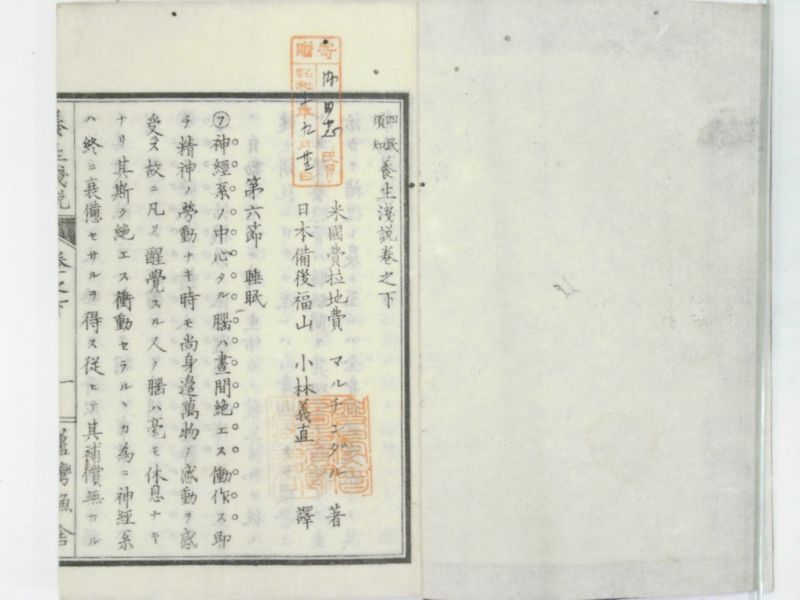 四民須知 養生淺説卷之下
米國費拉地費 マルチンダル 著
日本備後福山 小林義直 譯
第六節 睡眠
㋐神經系ノ中心タル腦ハ晝間絶エス働作ス即
チ精神ノ勞動ナキ時モ尚身邊萬物ノ感動ヲ感
受ス故ニ凡ソ醒覺スル人ノ腦ハ毫モ休息ナキ
ナリ其斯ク絶エス衝動セラルヽカ為ニ神經系
ハ終ニ衰憊セサルヲ得ス從ヒテ其補償無カル
養生淺説
卷之下
一
漁舍
寄贈